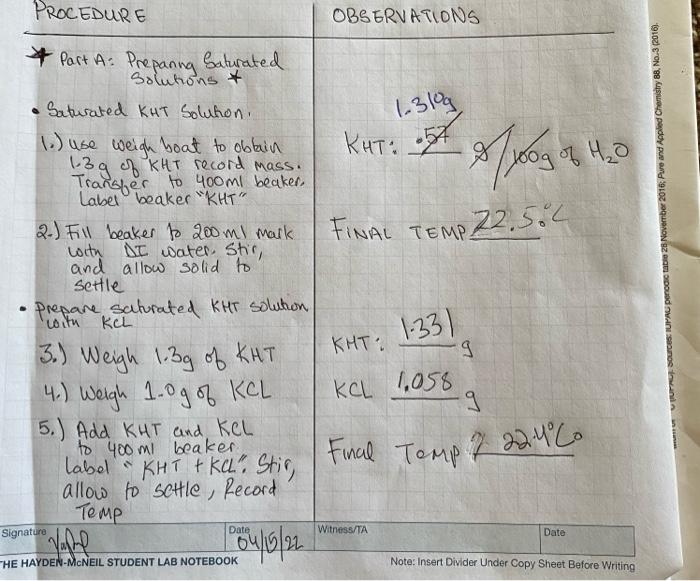 PROCEDURE
OBSERVATIONS
* Part A: Preparing Saturated
Solutions *
• Saturated KHT Solution.
1.) use weigh boat to obtain
1.3g of KHT record mass.
Transfer to 400ml beaker.
Label beaker "KHT"
1.310g
KHT: .57 g/100g of H2O
2.) Fill beaker to 200ml mark
with DI water. Stir,
and allow solid to
settle
FINAL TEMP 22.5°C
• Prepare saturated KHT solution
with KCL
3.) Weigh 1.3g of KHT
KHT: 1.331 g
4.) Weigh 1.0g of KCL
KCL 1.058 g
5.) Add KHT and KCL
to 400ml beaker
Label "KHT + KCL". Stir,
allow to settle, Record
Temp
Final Temp 22.4°C
Signature
Date
04/15/22
Witness/TA
Date
THE HAYDEN-McNEIL STUDENT LAB NOTEBOOK
Note: Insert Divider Under Copy Sheet Before Writing
(IUPAC). Sources: IUPAC periodic table 28 November 2016; Pure and Applied Chemistry 88, No. 3 (2016).